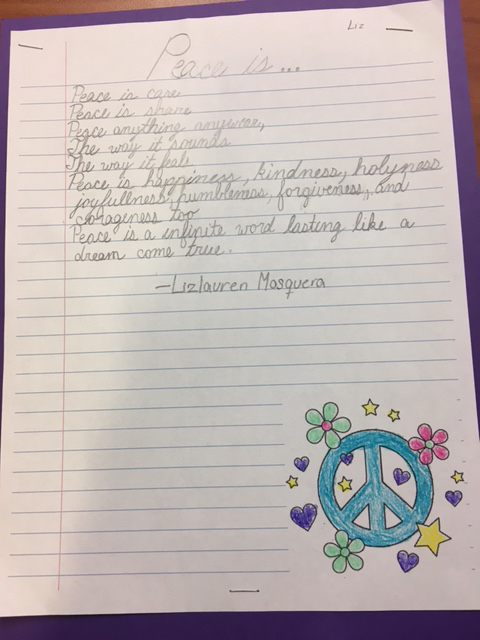 Liz
Peace is...
Peace is care
Peace is share
Peace anything anywear,
The way it sounds
The way it feels
Peace is happiness, kindness, holyness
joyfullness, humbleness, forgiveness, and
corageness too
Peace is a infinite word lasting like a
dream come true.
-Lizlauren Mosquera